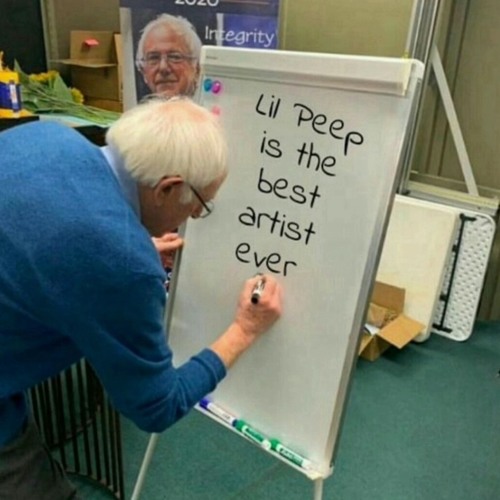 2020
Integrity
Lil Peep
is the
best
artist
ever